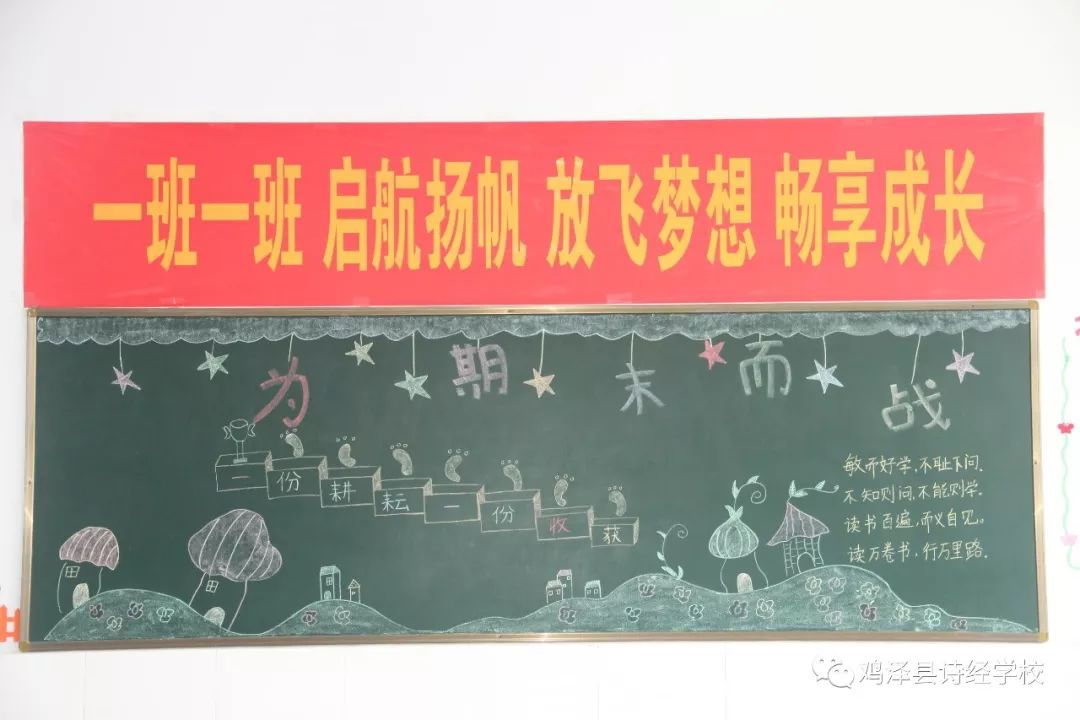 一班一班 启航扬帆 放飞梦想 畅享成长
为期末而战
一份耕耘一份收获
敏而好学，不耻下问．
不知则问，不能则学．
读书百遍，而义自见。
读万卷书，行万里路．
鸡泽县诗经学校